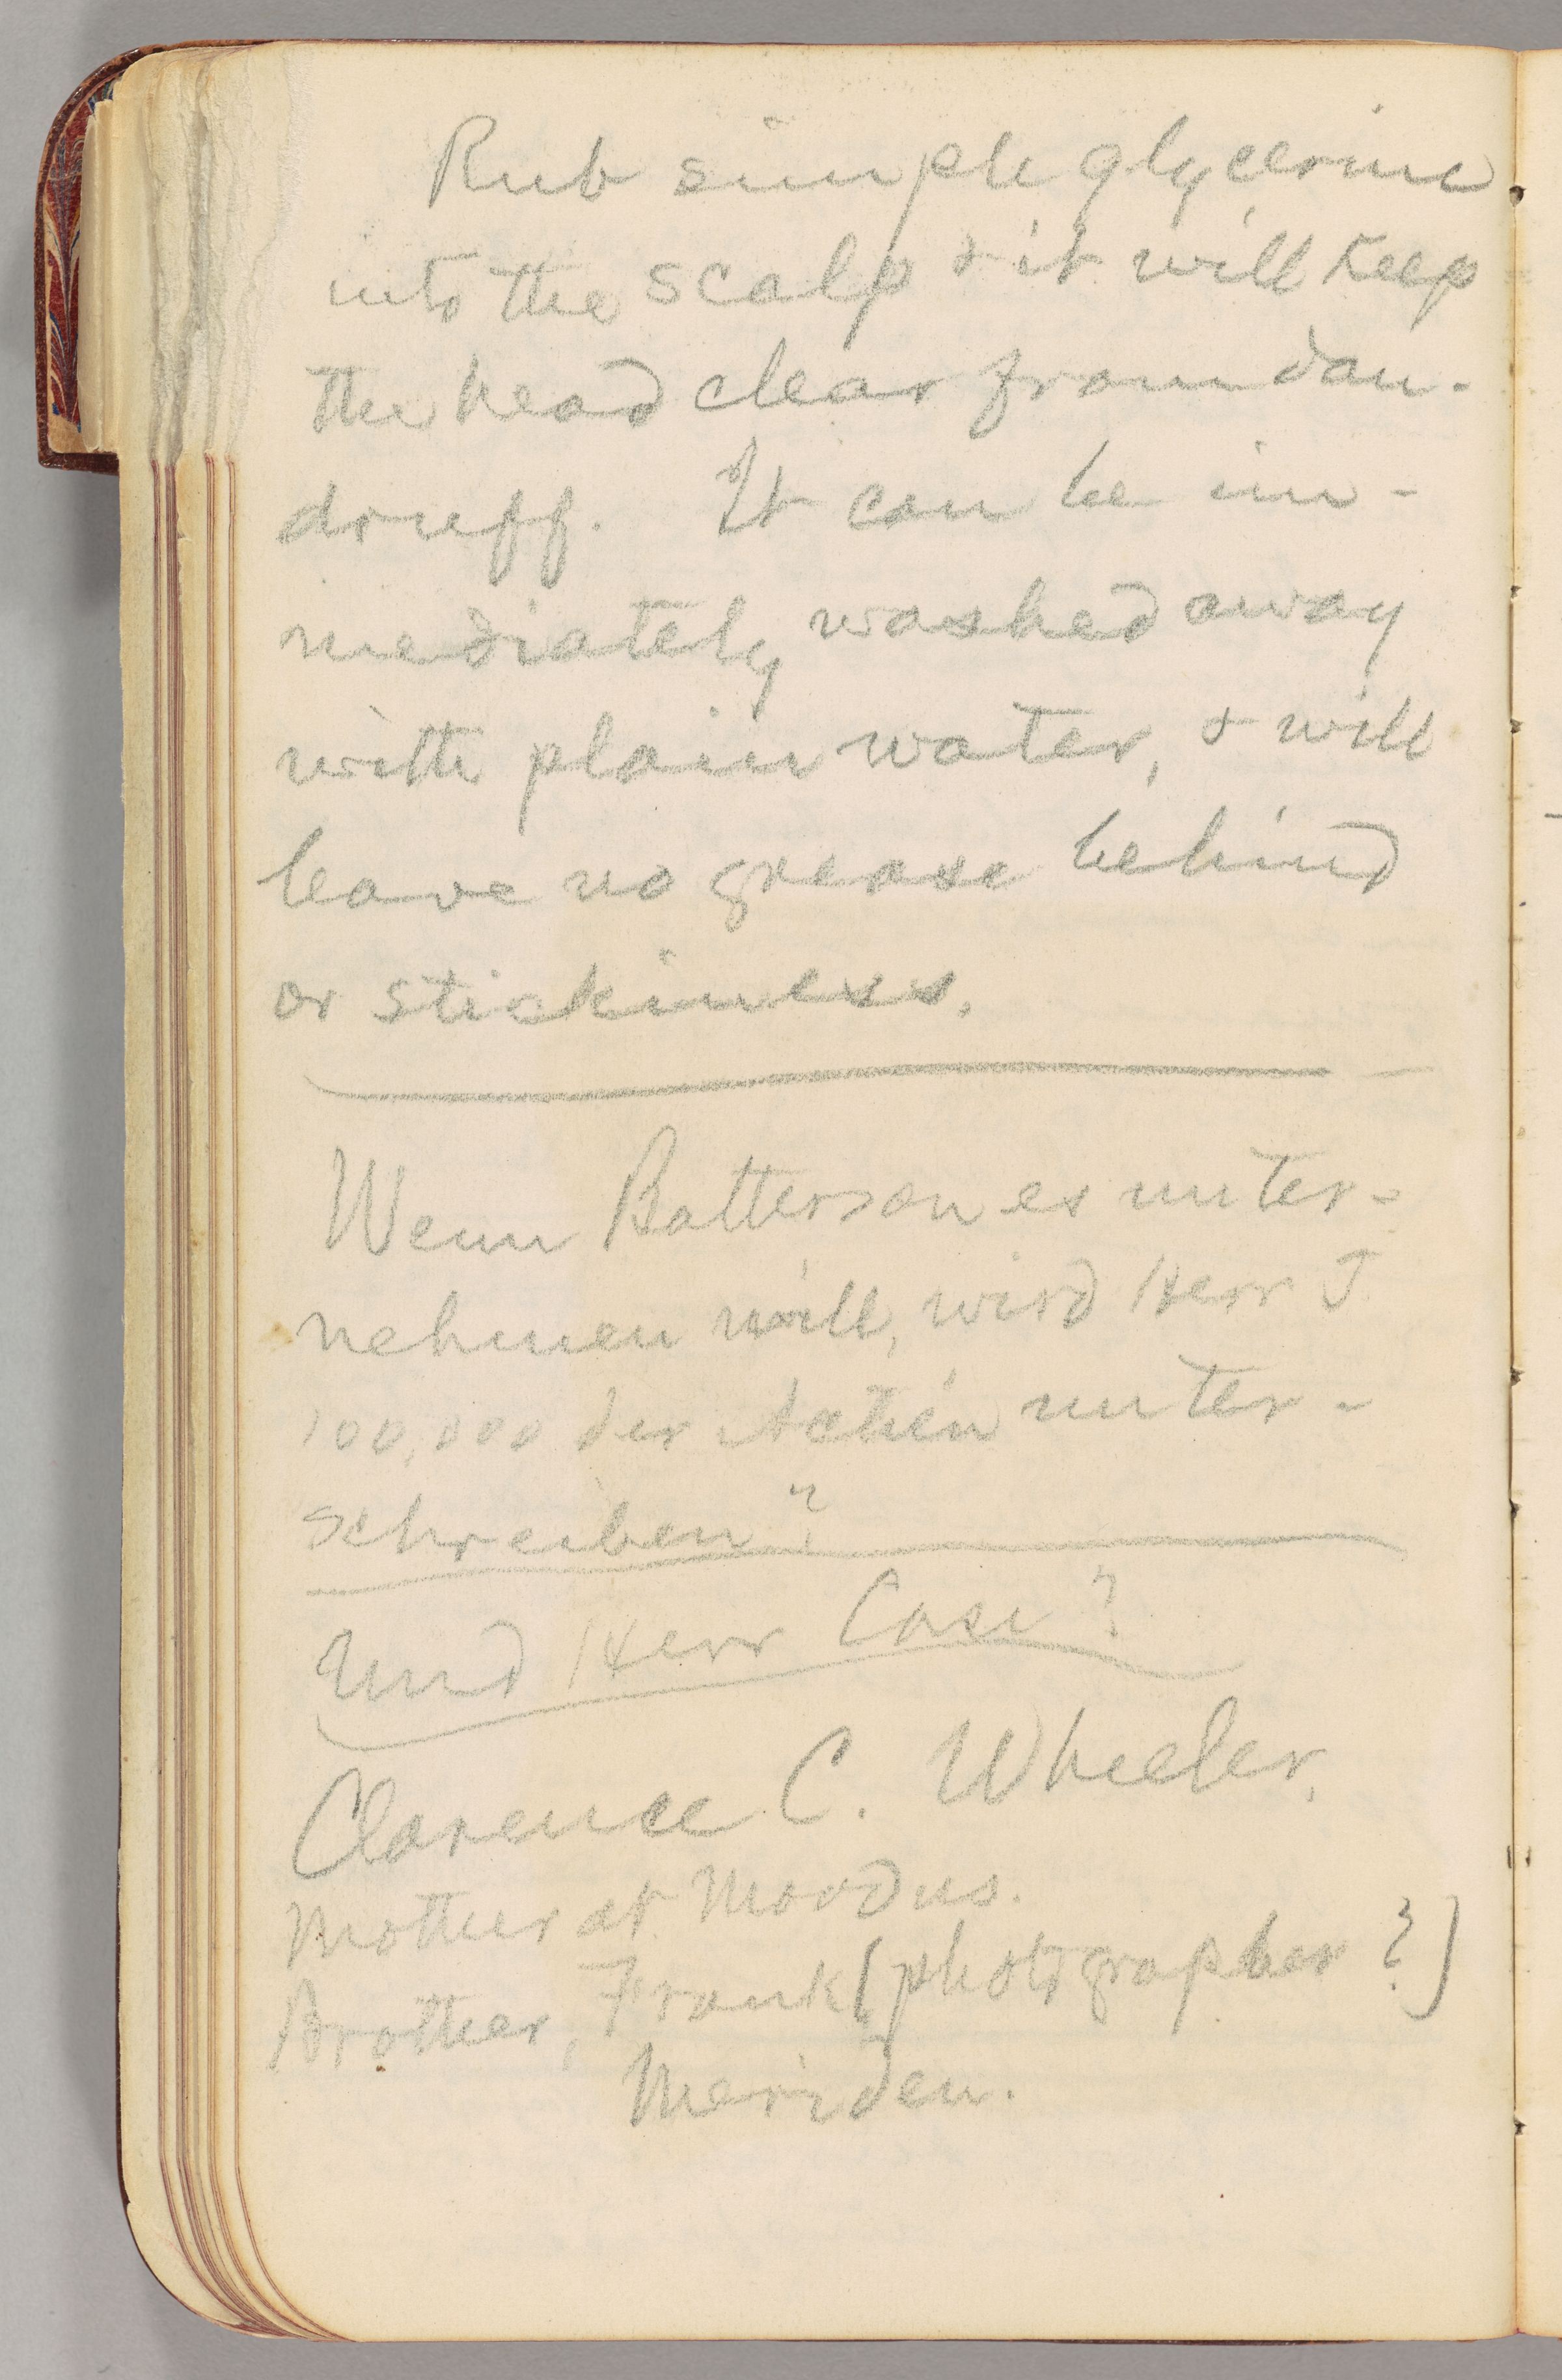 Rub simple glycerine
into the scalp & it will keep
the head clear from dan-
druff. It can be im-
mediately washed away
with plain water, & will
leave no grease behind
or stickiness.
Wenn Batterson es unter-
nehmen will, wird Herr J.
100,000 der Actien unter-
schreiben?
Und Herr Case?
Clarence C. Wheeler,
Mother at Moodus.
Brother, Frank (photographer?)
Meriden.